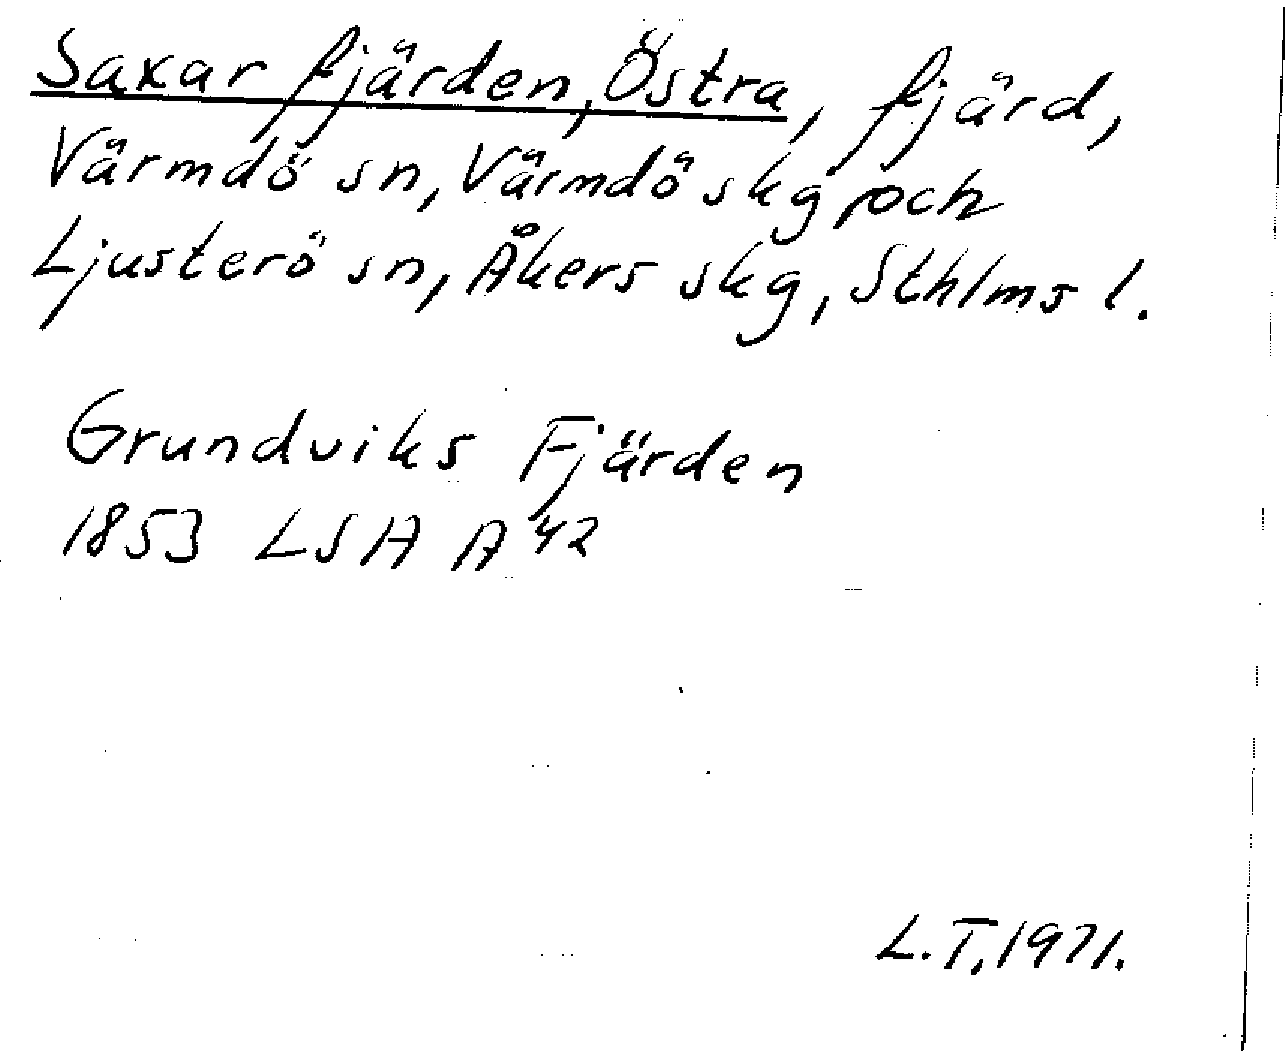 Saxarfjärden, Östra, fjärd,
Värmdö sn, Värmdö skg, och
Ljusterö sn, Åkers skg, Sthlms l.
Grundviks Fjärden
1853 LSA A 42
L.T. 1971.